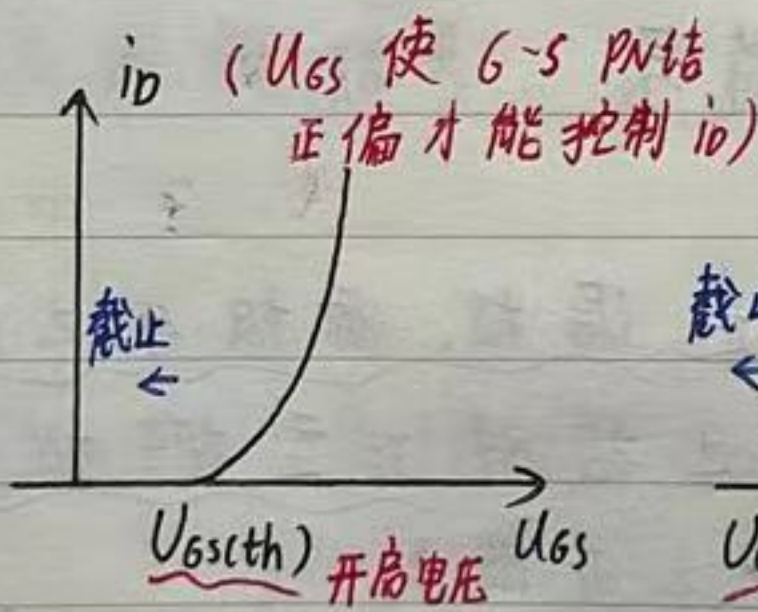 iD (UGS 使 G-S PN结
正偏才能控制 iD)
截止
←
UGS(th) 开启电压 UGS
截止
←
U